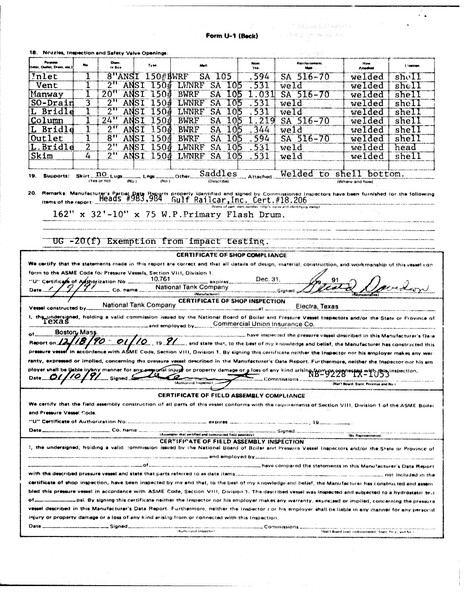 Form U-1 (Back)
18. Nozzles, Inspection and Safety Valve Openings:
Purpose (Inlet, Outlet, Drain, etc.) No. Diam. or Size Type Matl. Nom. Thk. Reinforcement Matl. How Attached Location
Inlet 1 8" ANSI 150# BWRF SA 105 .594 SA 516-70 welded shell
Vent 1 2" ANSI 150# LWNRF SA 105 .531 weld welded shell
Manway 1 20" ANSI 150# BWRF SA 105 1.031 SA 516-70 welded shell
SO-Drain 3 2" ANSI 150# LWNRF SA 105 .531 weld welded shell
L Bridle 1 2" ANSI 150# LWNRF SA 105 .531 weld welded shell
Column 1 24" ANSI 150# BWRF SA 105 1.219 SA 516-70 welded shell
L Bridle 1 2" ANSI 150# BWRF SA 105 .344 weld welded shell
Outlet 1 8" ANSI 150# BWRF SA 105 .594 SA 516-70 welded shell
L. Bridle 2 2" ANSI 150# LWNRF SA 105 .531 weld welded head
Skim 4 2" ANSI 150# LWNRF SA 105 .531 weld welded shell
19. Supports: Skirt no Lugs Legs Other Saddles Attached Welded to shell bottom.
(Yes or no) (No.) (No.) (Describe) (Where and how)
20. Remarks: Manufacturer's Partial Data Reports properly identified and signed by Commissioned Inspectors have been furnished for the following
items of the report: Heads #983,984 Gulf Railcar,Inc. Cert.#18.206
162" x 32'-10" x 75 W.P.Primary Flash Drum.
UG -20(f) Exemption from impact testing.
CERTIFICATE OF SHOP COMPLIANCE
We certify that the statements made in this report are correct and that all details of design, material, construction, and workmanship of this vessel con
form to the ASME Code for Pressure Vessels, Section VIII, Division 1.
"U" Certificate of Authorization No. 10,761 expires Dec. 31, 91
Date 1/9/91 National Tank Company Signed
(Manufacturer) (Representative)
CERTIFICATE OF SHOP INSPECTION
Vessel constructed by National Tank Company at Electra, Texas
I, the undersigned, holding a valid commission issued by the National Board of Boiler and Pressure Vessel Inspectors and/or the State or Province of
Texas and employed by Commercial Union Insurance Co.
of Boston, Mass have inspected the pressure vessel described in this Manufacturer's Data
Report on 12/18/90 - 01/10, 1991, and state that, to the best of my knowledge and belief, the Manufacturer has constructed this
pressure vessel in accordance with ASME Code, Section VIII, Division 1. By signing this certificate neither the Inspector nor his employer makes any war
ranty, expressed or implied, concerning the pressure vessel described in this Manufacturer's Data Report. Furthermore, neither the Inspector nor his em
ployer shall be liable in any manner for any personal injury or property damage or a loss of any kind arising from or connected with this inspection.
Date 01/10/91 Signed Commissions NB-9228 TX-1053
(Authorized Inspector) (Nat'l Board, State, Province and No.)
CERTIFICATE OF FIELD ASSEMBLY COMPLIANCE
We certify that the field assembly construction of all parts of this vessel conforms with the requirements of Section VIII, Division 1 of the ASME Boiler
and Pressure Vessel Code.
"U" Certificate of Authorization No. expires , 19
Date Co. name Signed
(Assembler that certified and constructed field assembly) (By Representative)
CERTIFICATE OF FIELD ASSEMBLY INSPECTION
I, the undersigned, holding a valid commission issued by the National Board of Boiler and Pressure Vessel Inspectors and/or the State or Province of
and employed by
of have compared the statements in this Manufacturer's Data Report
with the described pressure vessel and state that parts referred to as data items not included in the
certificate of shop inspection, have been inspected by me and that, to the best of my knowledge and belief, the Manufacturer has constructed and assem
bled this pressure vessel in accordance with ASME Code, Section VIII, Division 1. The described vessel was inspected and subjected to a hydrostatic test
of psi. By signing this certificate neither the Inspector nor his employer makes any warranty, expressed or implied, concerning the pressure
vessel described in this Manufacturer's Data Report. Furthermore, neither the Inspector nor his employer shall be liable in any manner for any personal
injury or property damage or a loss of any kind arising from or connected with this inspection.
Date Signed Commissions
(Authorized Inspector) (Nat'l Board, State, Prov. and No.)